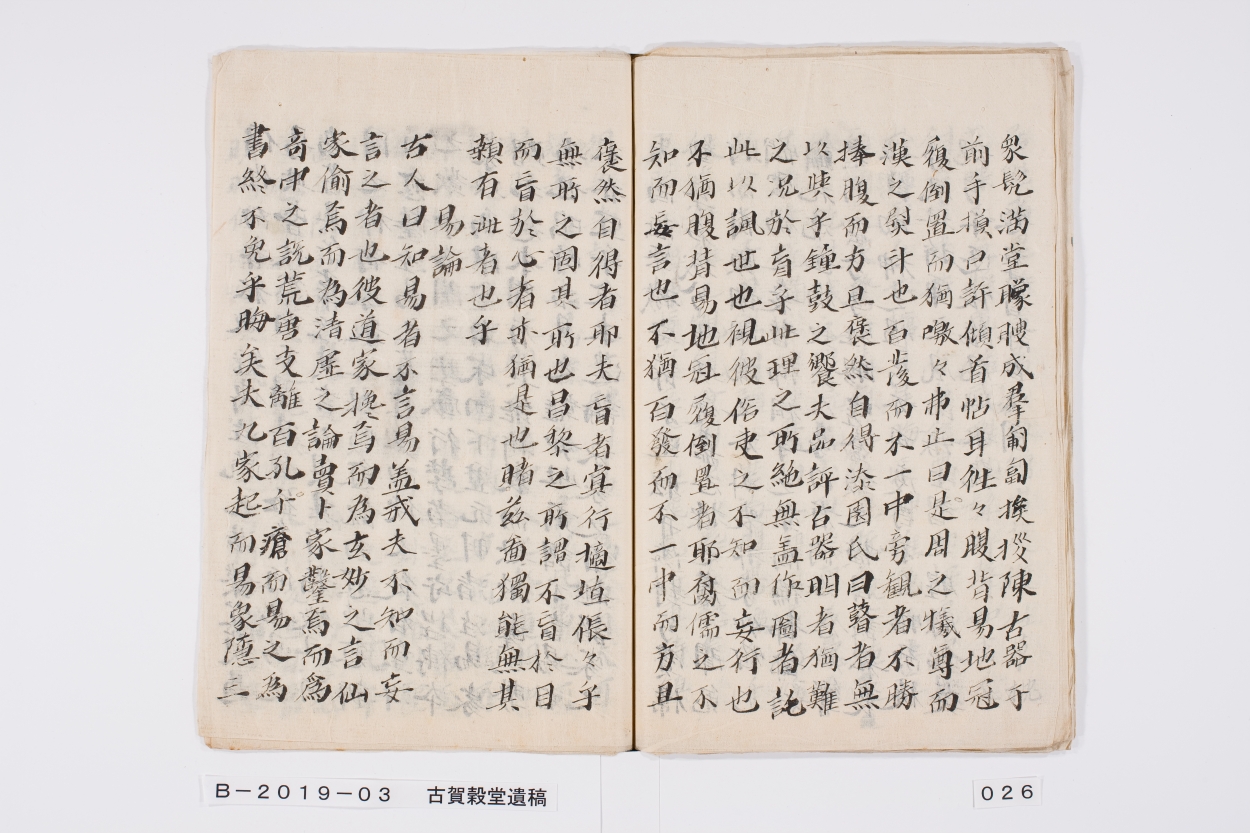 衆髡満堂矇瞍成羣匍匐挨拶陳古器于
前手摸口許傾首帖耳徃々腹背易地冠
履倒置而猶嗷々弗止曰是周之犧尊而
漢之熨斗也百發而不一中旁観者不勝
捧腹而方且褎然自得漆園氏曰瞽者無
以與乎鐘鼓之饗夫品評古器明者猶難
之况於盲乎此理之所絶無盖作圖者託
此以諷世也視彼俗吏之不知而妄行也
不猶腹背易地冠履倒置者耶腐儒之不
知而妄言也不猶百發而不一中而方且
褎然自得者耶夫盲者冥行擿埴倀々乎
無所之固其所也昌黎之所謂不盲於目
而盲於心者亦猶是也睹兹畵獨能無其
顙有泚者也乎
易論
古人曰知易者不言易盖戒夫不知而妄
言之者也彼道家攙焉而為玄妙之言仙
家偷焉而為清虚之論賣卜家鑿焉而為
奇中之説荒唐支離百孔千瘡而易之為
書終不免乎晦矣夫九家起而易象隠三
B－2019－03　古賀穀堂遺稿
026